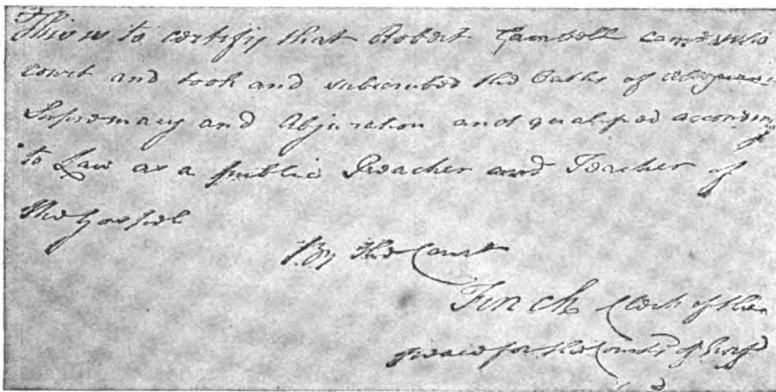 This is to certify that Robert Campbell came into
court and took and subscribed the Oaths of
Supremacy and Abjuration and qualified according
to Law as a public Preacher and Teacher of
the Gospel
By the Court
Finch Clerk of the
peace for the County of